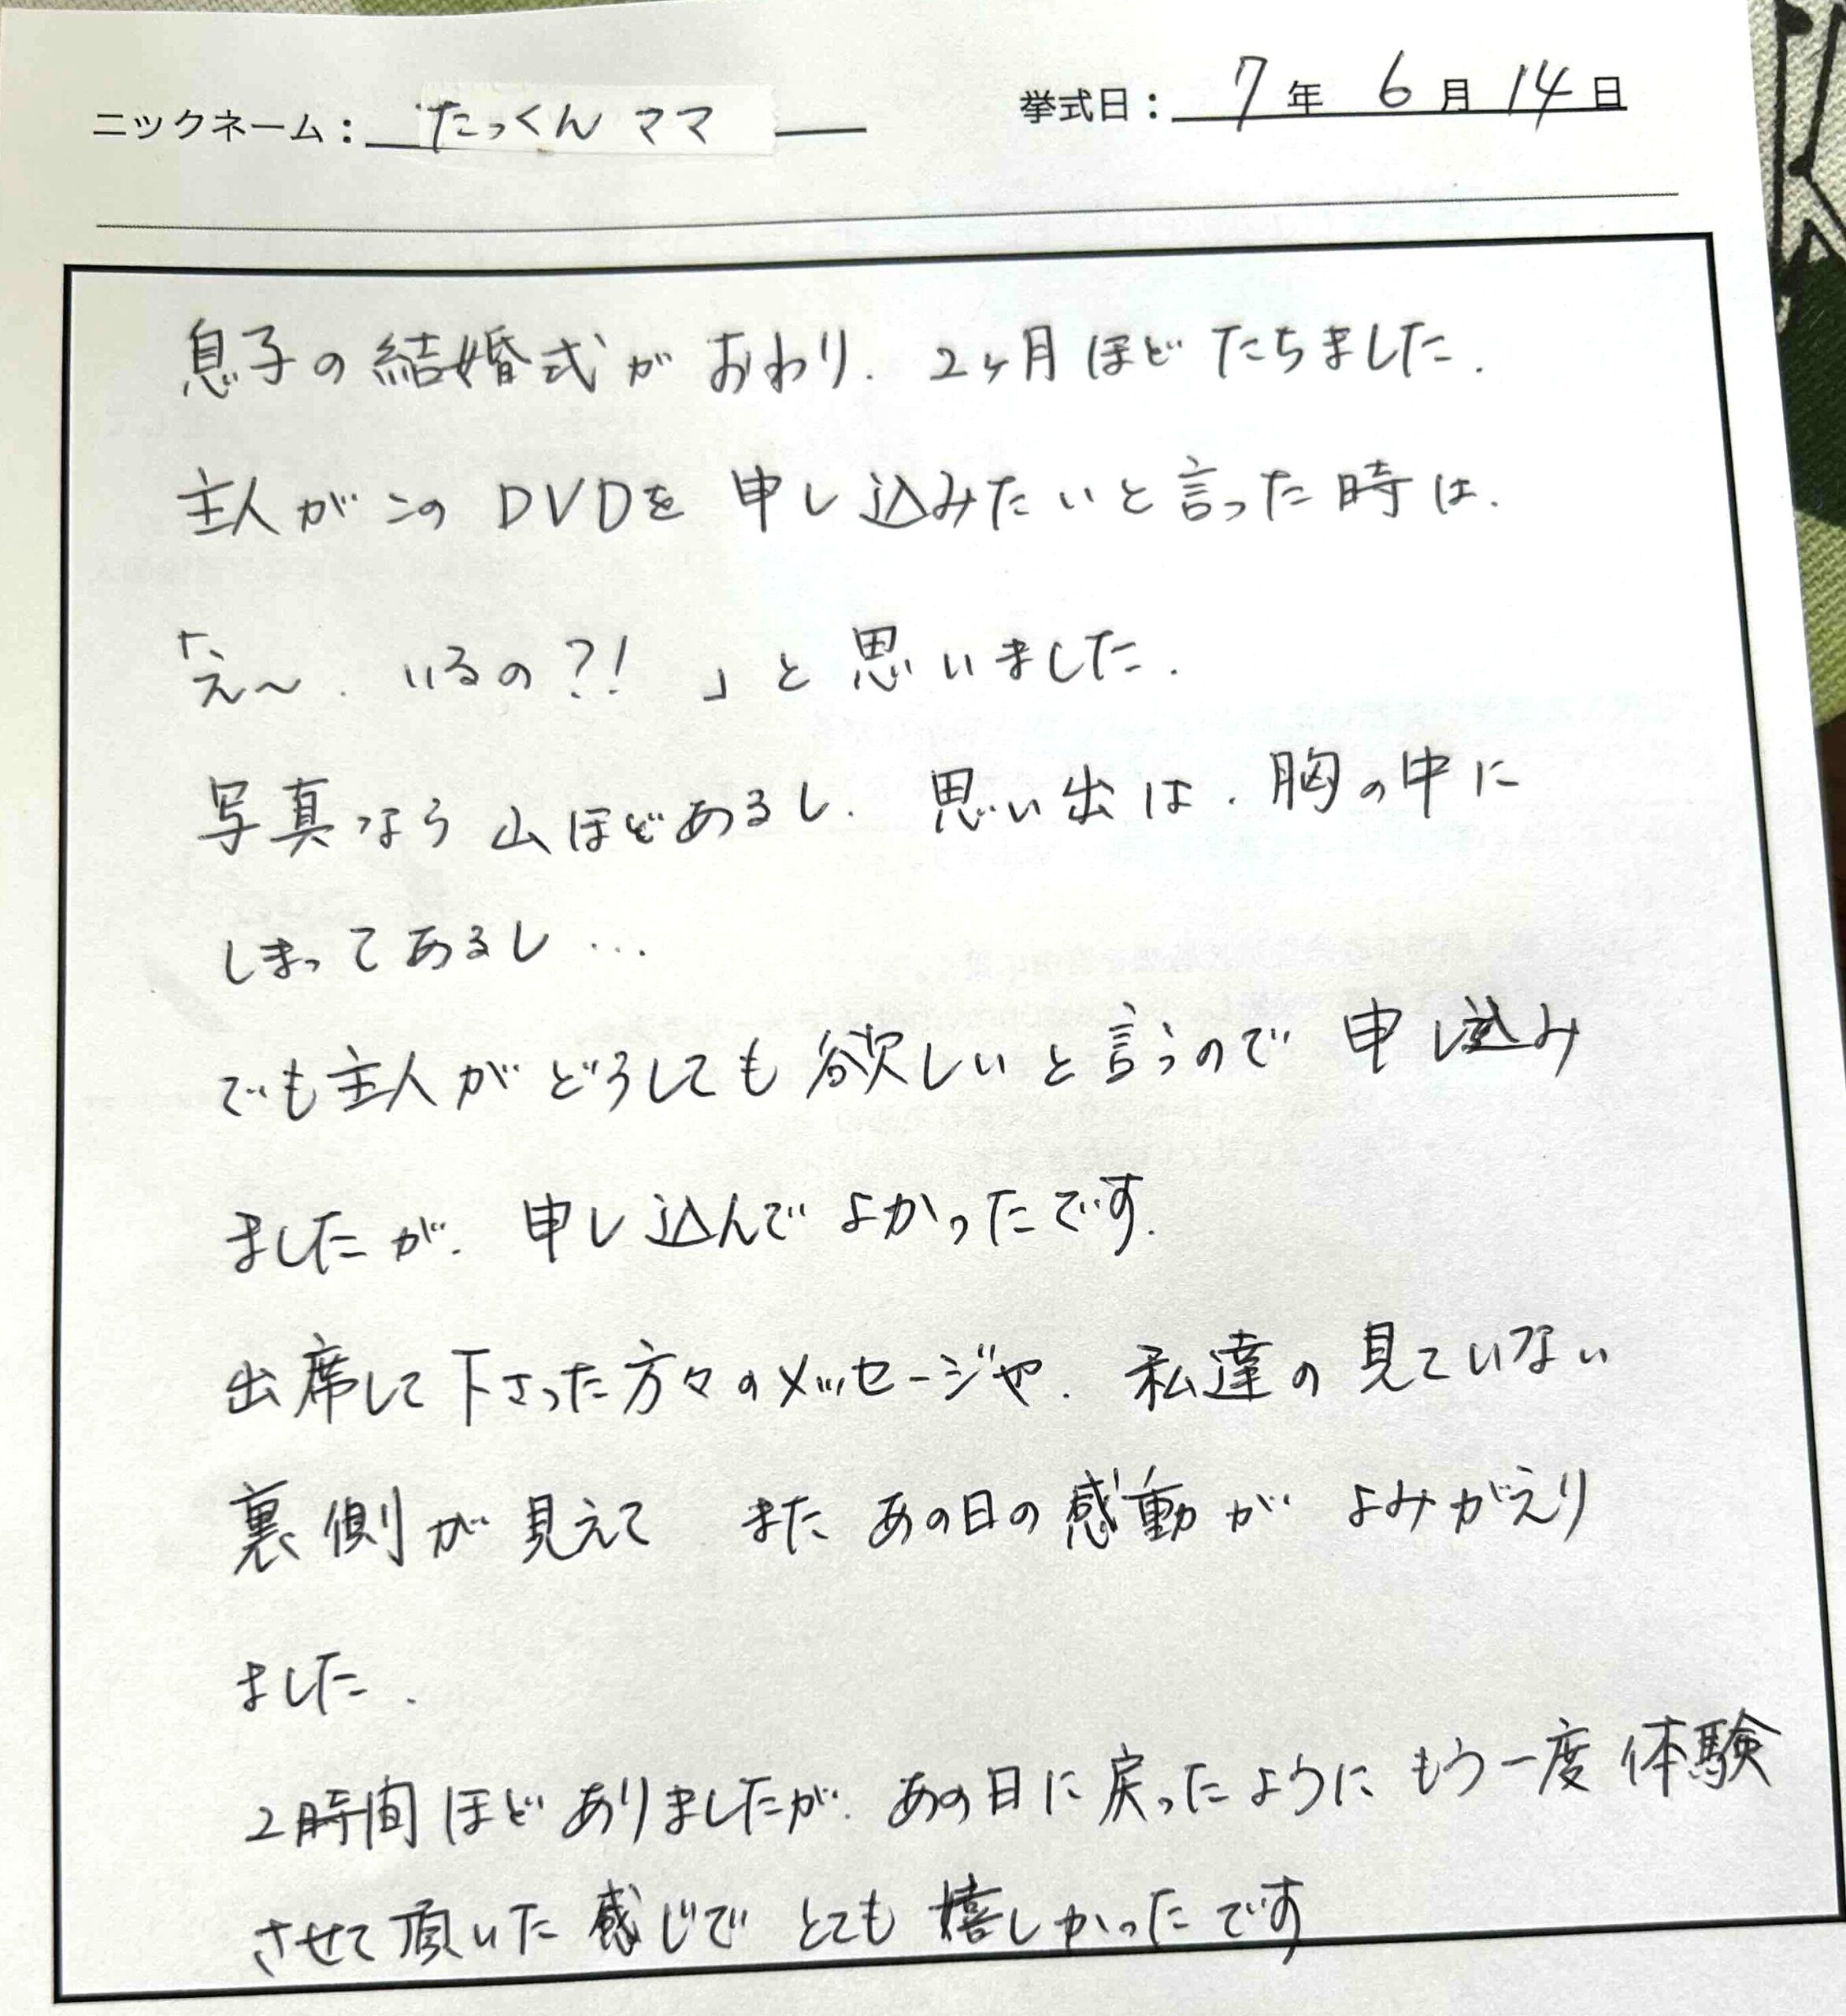 ニックネーム：たっくんママ
挙式日：7年6月14日
息子の結婚式がおわり、2ヶ月ほどたちました。
主人がこのDVDを申し込みたいと言った時は、
「え〜、いるの？！」と思いました。
写真なら山ほどあるし、思い出は、胸の中に
しまってあるし…
でも主人がどうしても欲しいと言うので申し込み
ましたが、申し込んでよかったです。
出席して下さった方々のメッセージや、私達の見ていない
裏側が見えて またあの日の感動がよみがえり
ました。
2時間ほどありましたが、あの日に戻ったようにもう一度体験
させて頂いた感じでとても嬉しかったです